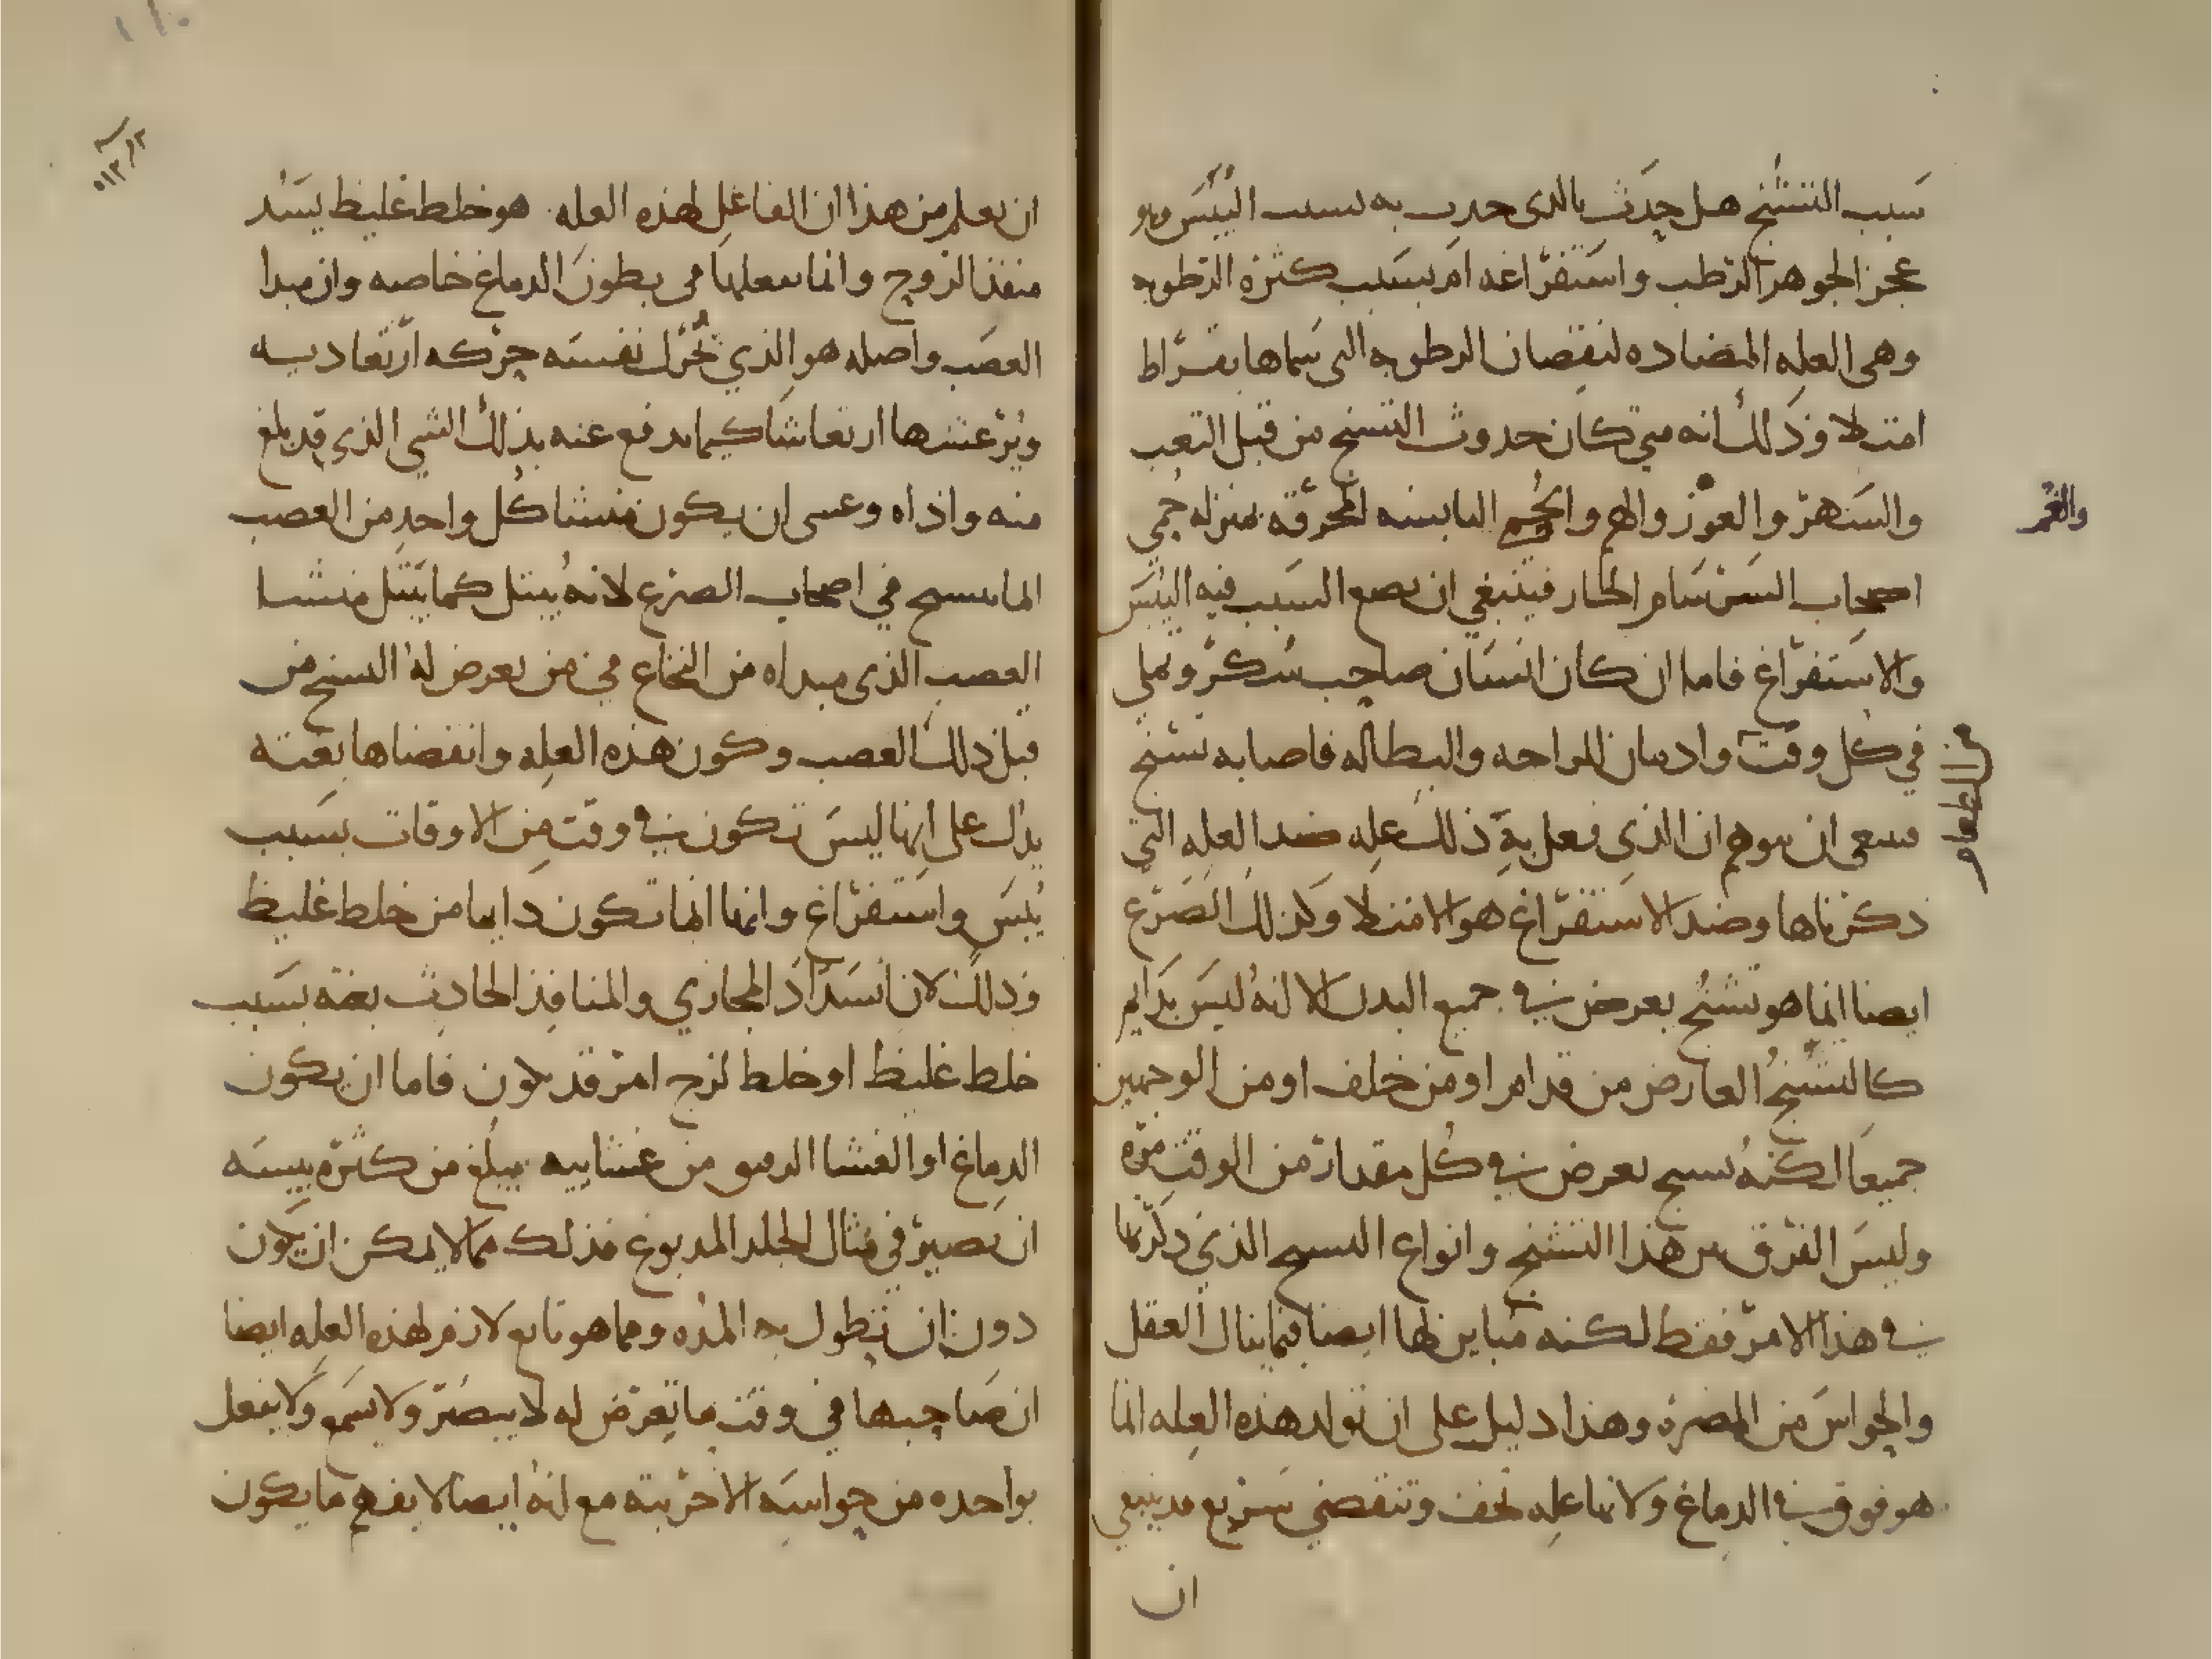 سبب التشنج هل حدث بالذي حدث به بسبب اليبس وهو
عجز الجوهر الرطب واستفراغه ام بسبب كثرة الرطوبه
وهي العله المضاده لنقصان الرطوبه التي سماها بقراط
امتلا وذلك انه متى كان حدوث التشنج من قبل التعب
والسهر والعوز والهم والحمى اليابسه المحرقه بمنزله حمى
والغم
اصحاب السرسام الحار فينبغي ان يضع السبب فيه اليبس
والاستفراغ فاما ان كان انسان صاحب سكر وتملي
من الطعام
في كل وقت وادمان للراحه والبطاله فاصابه تشنج
فينبغي ان يتوهم ان الذي فعل به ذلك عله ضد العله التي
ذكرناها وضد الاستفراغ هو الامتلا وكذلك الصرع
ايضا انما هو تشنج يعرض في جميع البدن الا انه ليس بدايم
كالتشنج العارض من قدام او من خلف او من الوجهين
جميعا لكنه تشنج يعرض في كل مقدار من الوقت مره
وليس الفرق بين هذا التشنج وانواع التشنج الذي ذكرنا
في هذا الامر فقط لكنه مباين لها ايضا فيما ينال العقل
والحواس من المضره وهذا دليل على ان تولد هذه العله انما
هو فوق في الدماغ ولانها عله تخف وتنقضي سريع قد ينبغي
ان
ان يعلم من هذا ان الفاعل لهذه العله هو خلط غليظ يسد
منفذ الروح وانما يفعلها في بطون الدماغ خاصه وان مبدا
العصب واصله هو الذي تحرك نفسه حركه ارتعاديه
ويرعشها ارتعاشا كيما يدفع عنه بذلك الشي الذي قد بلغ
منه واذاه وعسى ان يكون منشا كل واحد من العصب
انما يتشنج في اصحاب الصرع لانه يبتل كما يبتل منشا
العصب الذي مبداه من النخاع في من يعرض له التشنج من
قبل ذلك العصب وكون هذه العله وانقضاها بغته
يدل على انها ليس تكون في وقت من الاوقات بسبب
يبس واستفراغ وانها انما تكون دايما من خلط غليظ
وذلك لان انسداد المجاري والمنافذ الحادث بغته بسبب
خلط غليظ او خلط لزج امر قد يكون فاما ان يكون
الدماغ او الغشا الدقيق من غشاييه يبلغ من كثره يبسه
ان يصير في مثال الجلد المدبوغ فذلك مما لا يمكن ان يكون
دون ان تطول به المده ومما هو تابع لازم لهذه العله ايضا
ان صاحبها في وقت ما تعرض له لا يبصر ولا يسمع ولا يفعل
بواحده من حواسه الاخر بته مع انه ايضا لا يفهم ما يكون